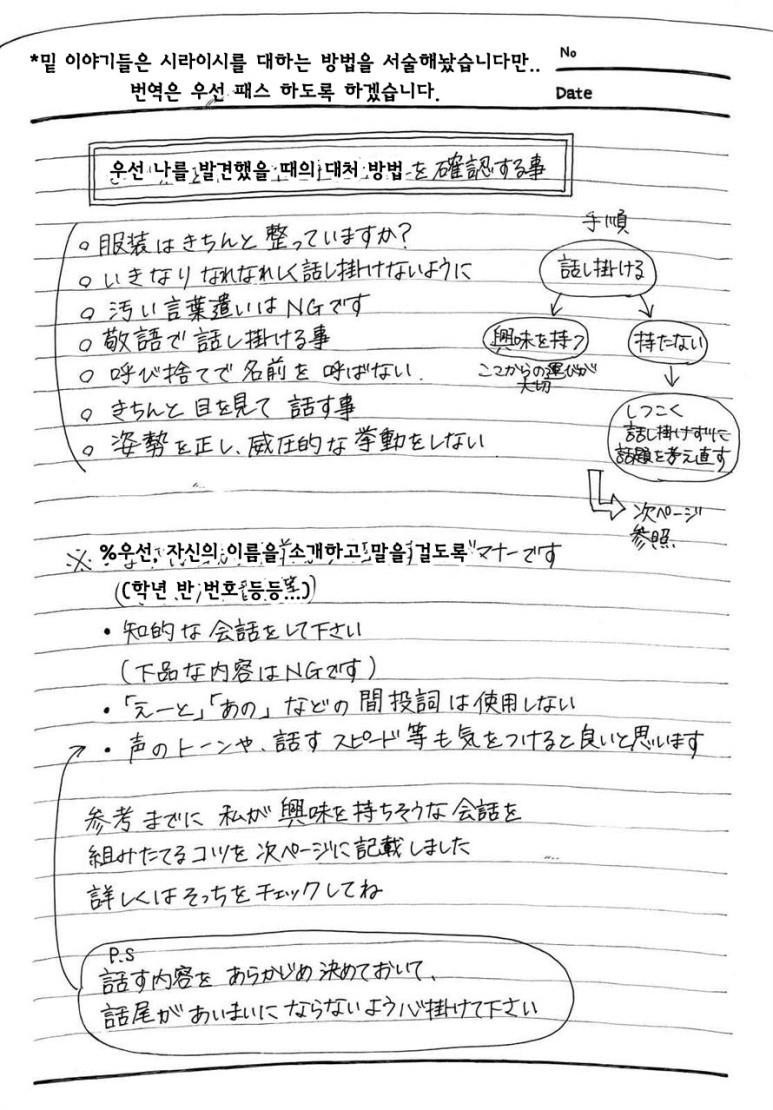 *밑 이야기들은 시라이시를 대하는 방법을 서술해놨습니다만..
번역은 우선 패스 하도록 하겠습니다.
No
Date
우선 나를 발견했을 때의 대처 방법 を確認する事
○ 服装はきちんと整っていますか?
○ いきなりなれなれしく話し掛けないように
○ 汚い言葉遣いはNGです
○ 敬語で話し掛ける事
○ 呼び捨てで名前を呼ばない.
○ きちんと目を見て話す事
○ 姿勢を正し、威圧的な挙動をしない
手順
話し掛ける
興味を持つ
持たない
ここからの運びが
大切
しつこく
話し掛けずに
話題を考え直す
次ページ
参照
※ %우선, 자신의 이름을 소개하고 말을 걸도록 マナーです
(학년 반 번호 등등...)
・知的な会話をして下さい
(下品な内容はNGです)
・「えーと」「あの」などの間投詞は使用しない
・声のトーンや、話すスピード等も気をつけると良いと思います
参考までに私が興味を持ちそうな会話を
組みたてるコツを次ページに記載しました
詳しくはそっちをチェックしてね
P.S
話す内容をあらかじめ決めておいて、
話尾があいまいにならないよう心掛けて下さい